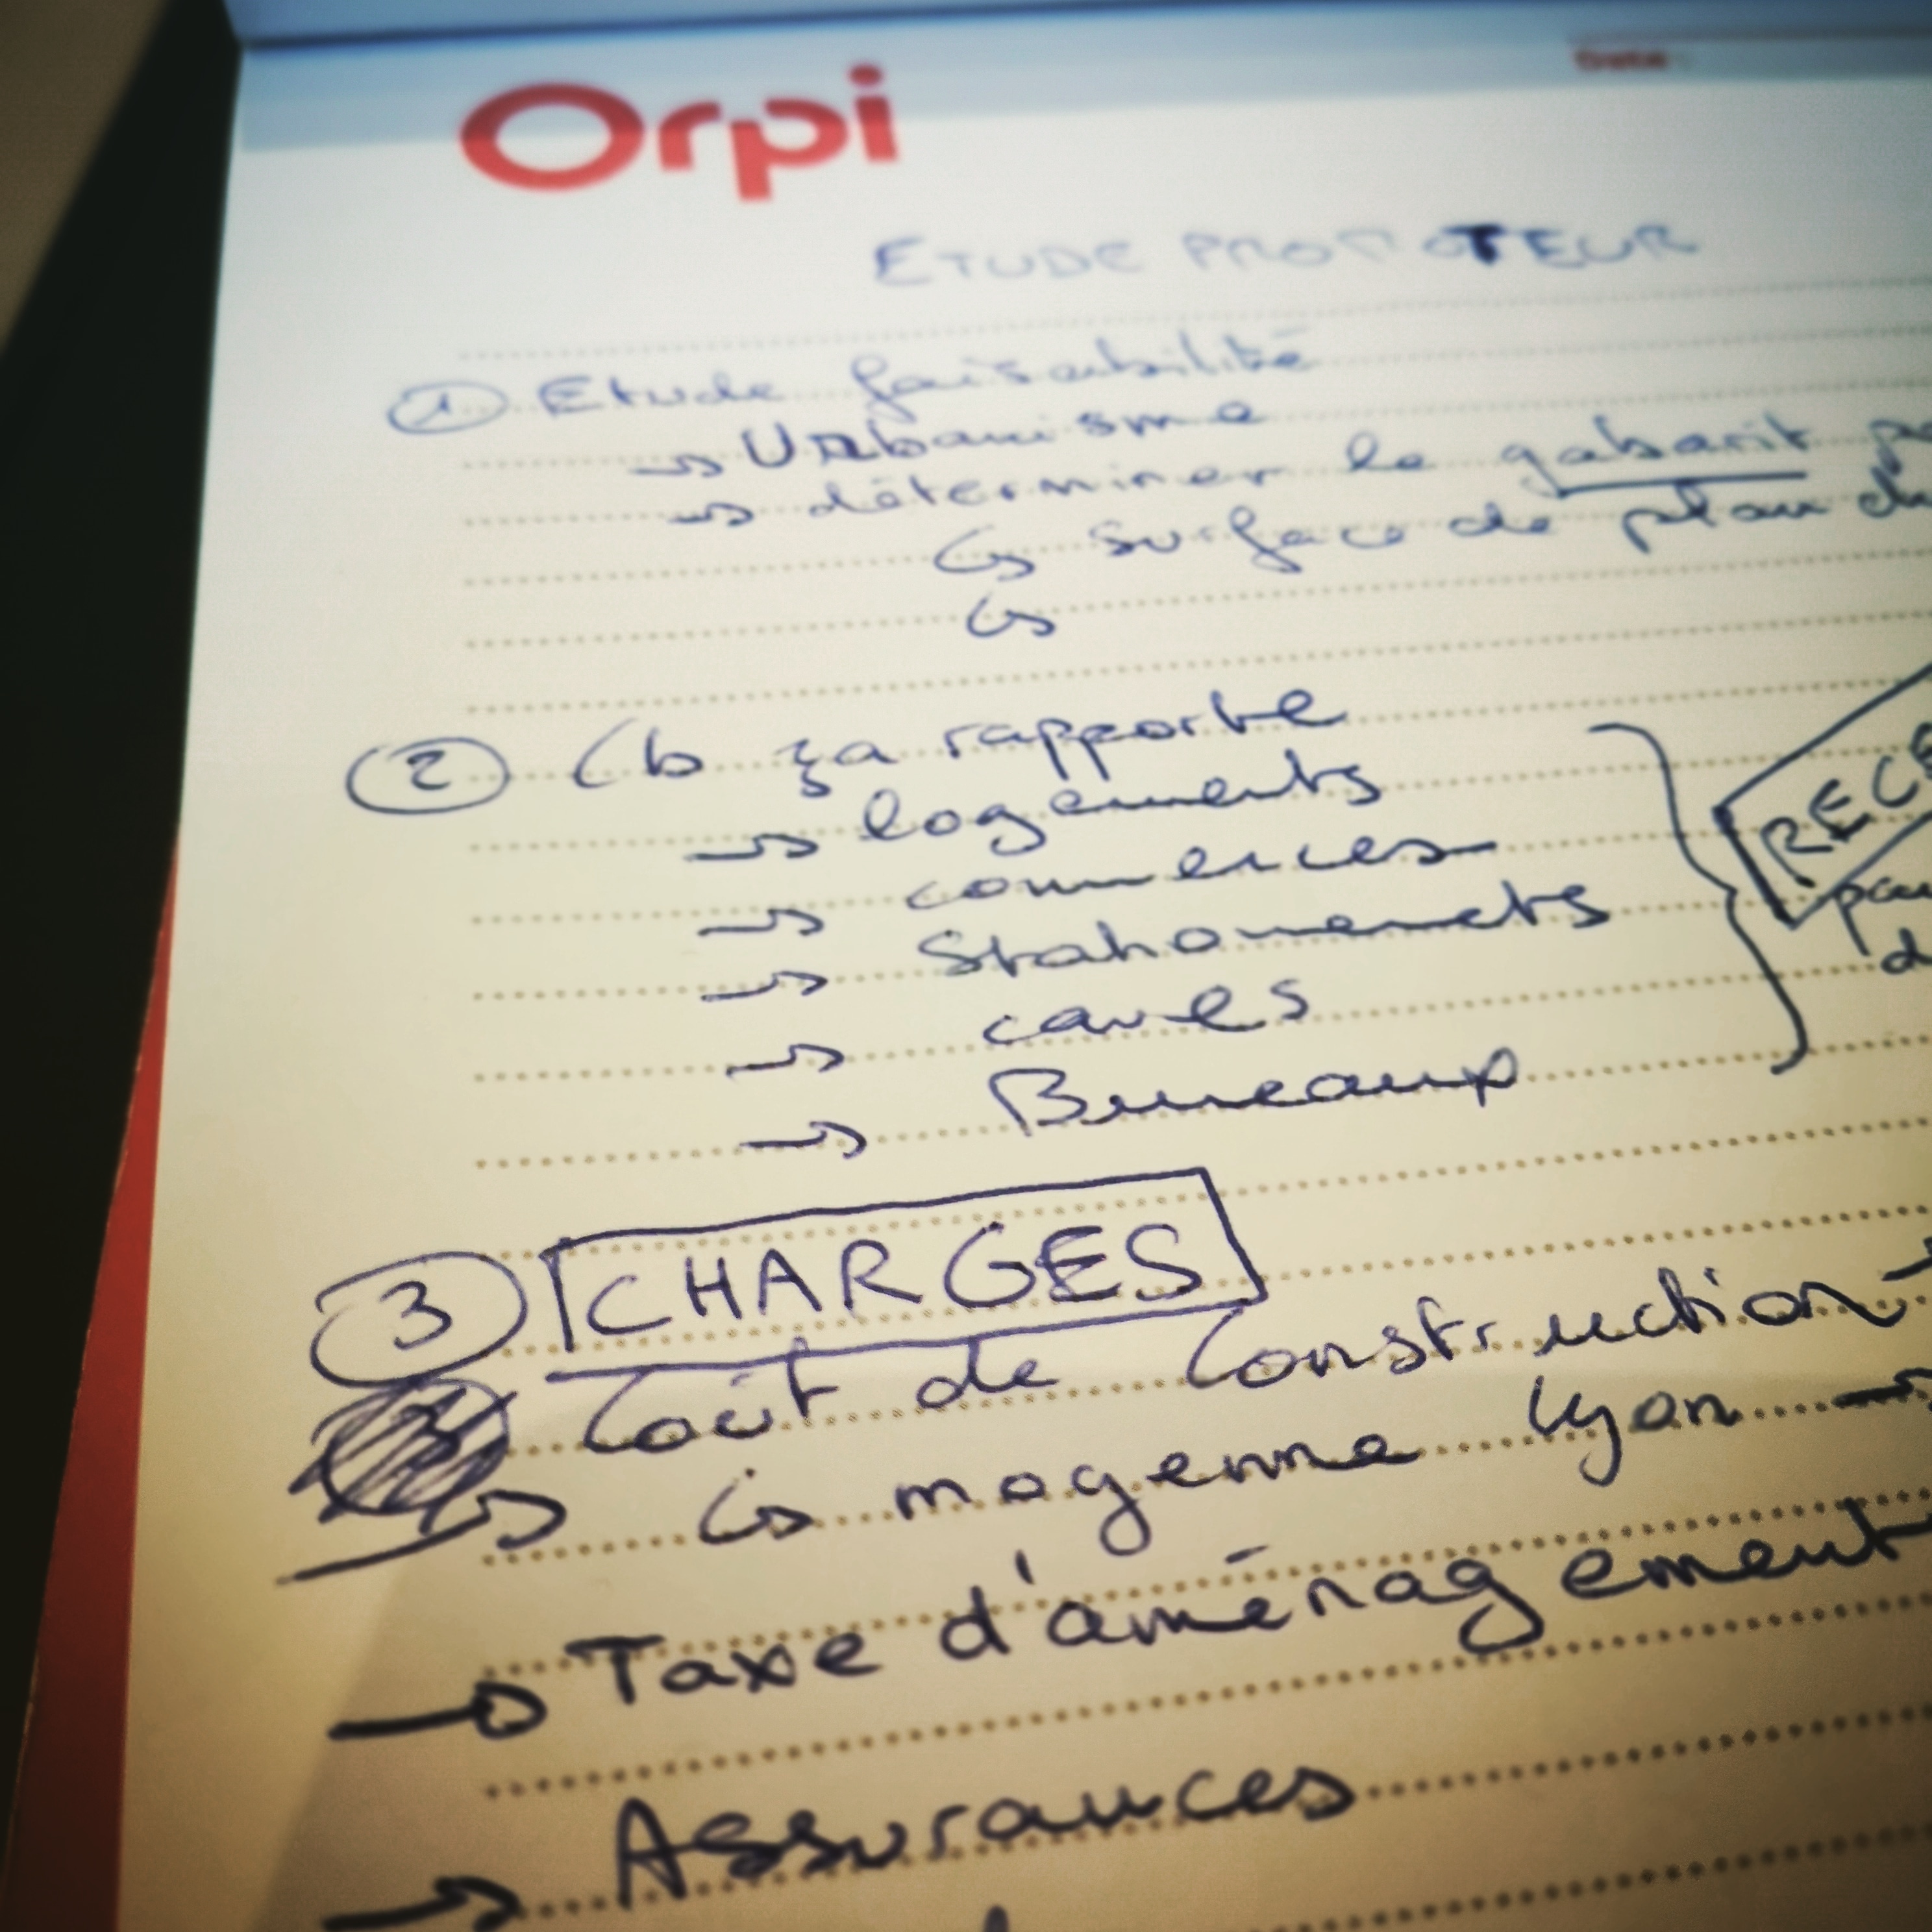 Orpi
Date
ETUDE PROMOTEUR
① Etude faisabilité
→ Urbanisme
→ déterminer le gabarit
↳ surface de plancher
↳
② Cb ça rapporte
→ logements
→ commerces
→ Stationements
→ caves
→ Bureaux
RECE
③ CHARGES
Coût de Construction →
↳ moyenne Lyon →
→ Taxe d'aménagement
→ Assurances